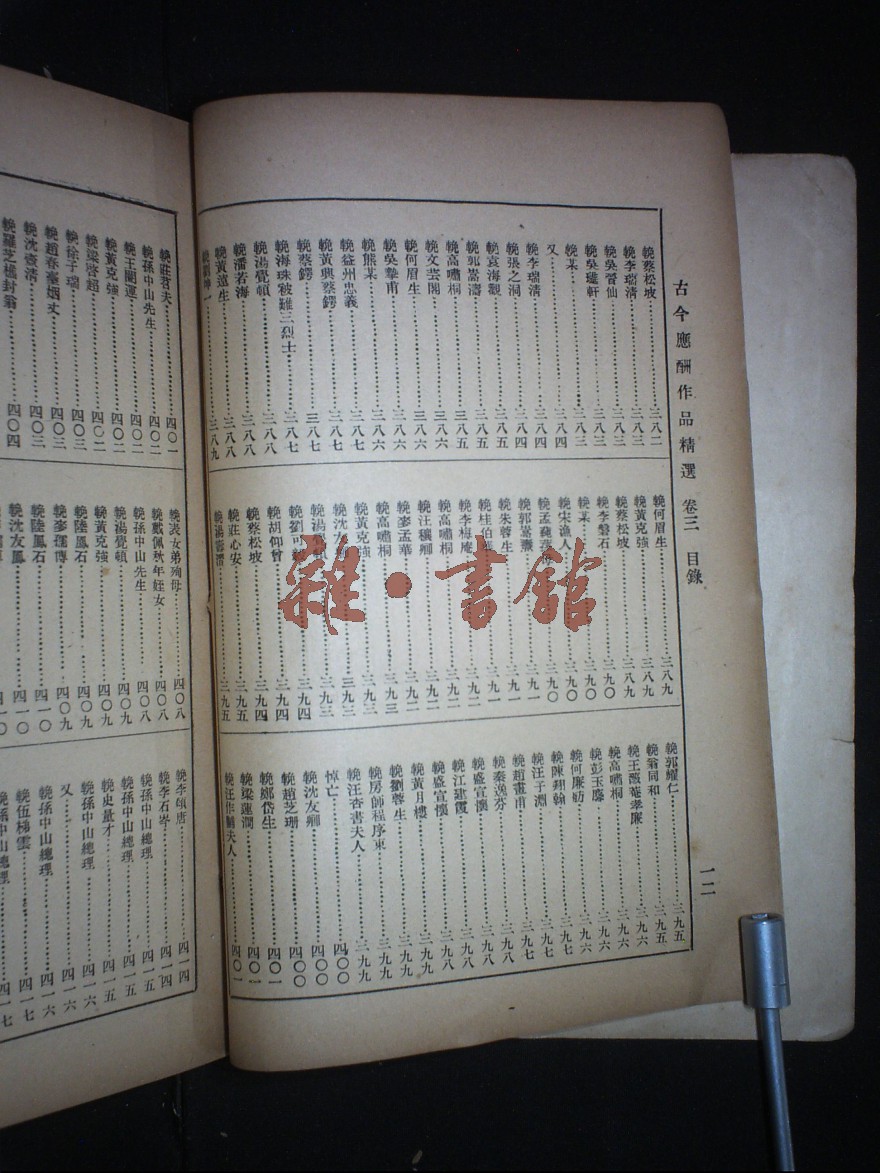 古今應酬作品精選 卷三 目錄
一二
輓蔡松坡……三八二
輓李瑞清……三八三
輓吳晉仙……三八三
輓吳璡軒……三八三
輓某……三八三
又……三八四
輓李瑞清……三八四
輓張之洞……三八四
輓袁海觀……三八五
輓郭嵩濤……三八五
輓高嘯桐……三八五
輓文芸閣……三八六
輓何眉生……三八六
輓吳摯甫……三八六
輓熊某……三八六
輓益州忠義……三八七
輓黃興蔡鍔……三八七
輓蔡鍔……三八七
輓海珠被難三烈士……三八七
輓湯覺頓……三八七
輓潘若海……三八八
輓黃遠生……三八八
三八九
輓何眉生……三八九
輓黃克強……三八九
輓蔡松坡……三八九
輓李磐石……三九〇
輓某……三九〇
輓宋漁人……三九〇
輓孟……三九〇
輓郭嵩燾……三九一
輓朱蓉生……三九一
輓桂伯……三九一
輓李梅庵……三九一
輓高嘯桐……三九二
輓汪穰卿……三九二
輓麥孟華……三九二
輓高嘯桐……三九三
輓黃克強……三九三
輓沈友……三九三
輓湯……三九三
輓劉可……三九四
輓胡仰曾……三九四
輓蔡松坡……三九四
輓莊心安……三九五
輓湯……三九五
輓郭耀仁……三九五
輓翁同和……三九五
輓王薇菴孝廉……三九六
輓高嘯桐……三九六
輓彭玉麐……三九六
輓何廉舫……三九六
輓陳翔翰……三九七
輓汪子淵……三九七
輓趙畫甫……三九七
輓秦逸芬……三九八
輓盛宣懷……三九八
輓江建霞……三九八
輓盛宣懷……三九八
輓黃月樓……三九九
輓劉蓉生……三九九
輓房師程序東……三九九
輓汪杏書夫人……三九九
悼亡……四〇〇
輓沈友卿……四〇〇
輓趙芝珊……四〇〇
輓鄭岱生……四〇一
輓梁蓮澗……四〇一
輓汪作黼夫人……四〇一
輓莊君夫……四〇一
輓孫中山先生……四〇二
輓王闓運……四〇二
輓黃克強……四〇二
輓梁啓超……四〇二
輓徐子瑞……四〇三
輓趙春臺烟丈……四〇三
輓沈壺清……四〇三
輓羅芝橘封翁……四〇四
輓裘女弟殉母……四〇八
輓戴佩秋年姪女……四〇八
輓孫中山先生……四〇八
輓湯覺頓……四〇九
輓黃克強……四〇九
輓陸鳳石……四〇九
輓麥孺博……四〇九
輓陸鳳石……四一〇
輓沈友鳳……四一〇
四一〇
輓李頌唐……四一四
輓李石岑……四一四
輓孫中山總理……四一五
輓孫中山總理……四一五
輓史量才……四一五
輓孫中山總理……四一六
又……四一六
輓孫中山總理……四一六
輓伍梯雲……四一七
輓孫中山總理……四一七
雜·書館